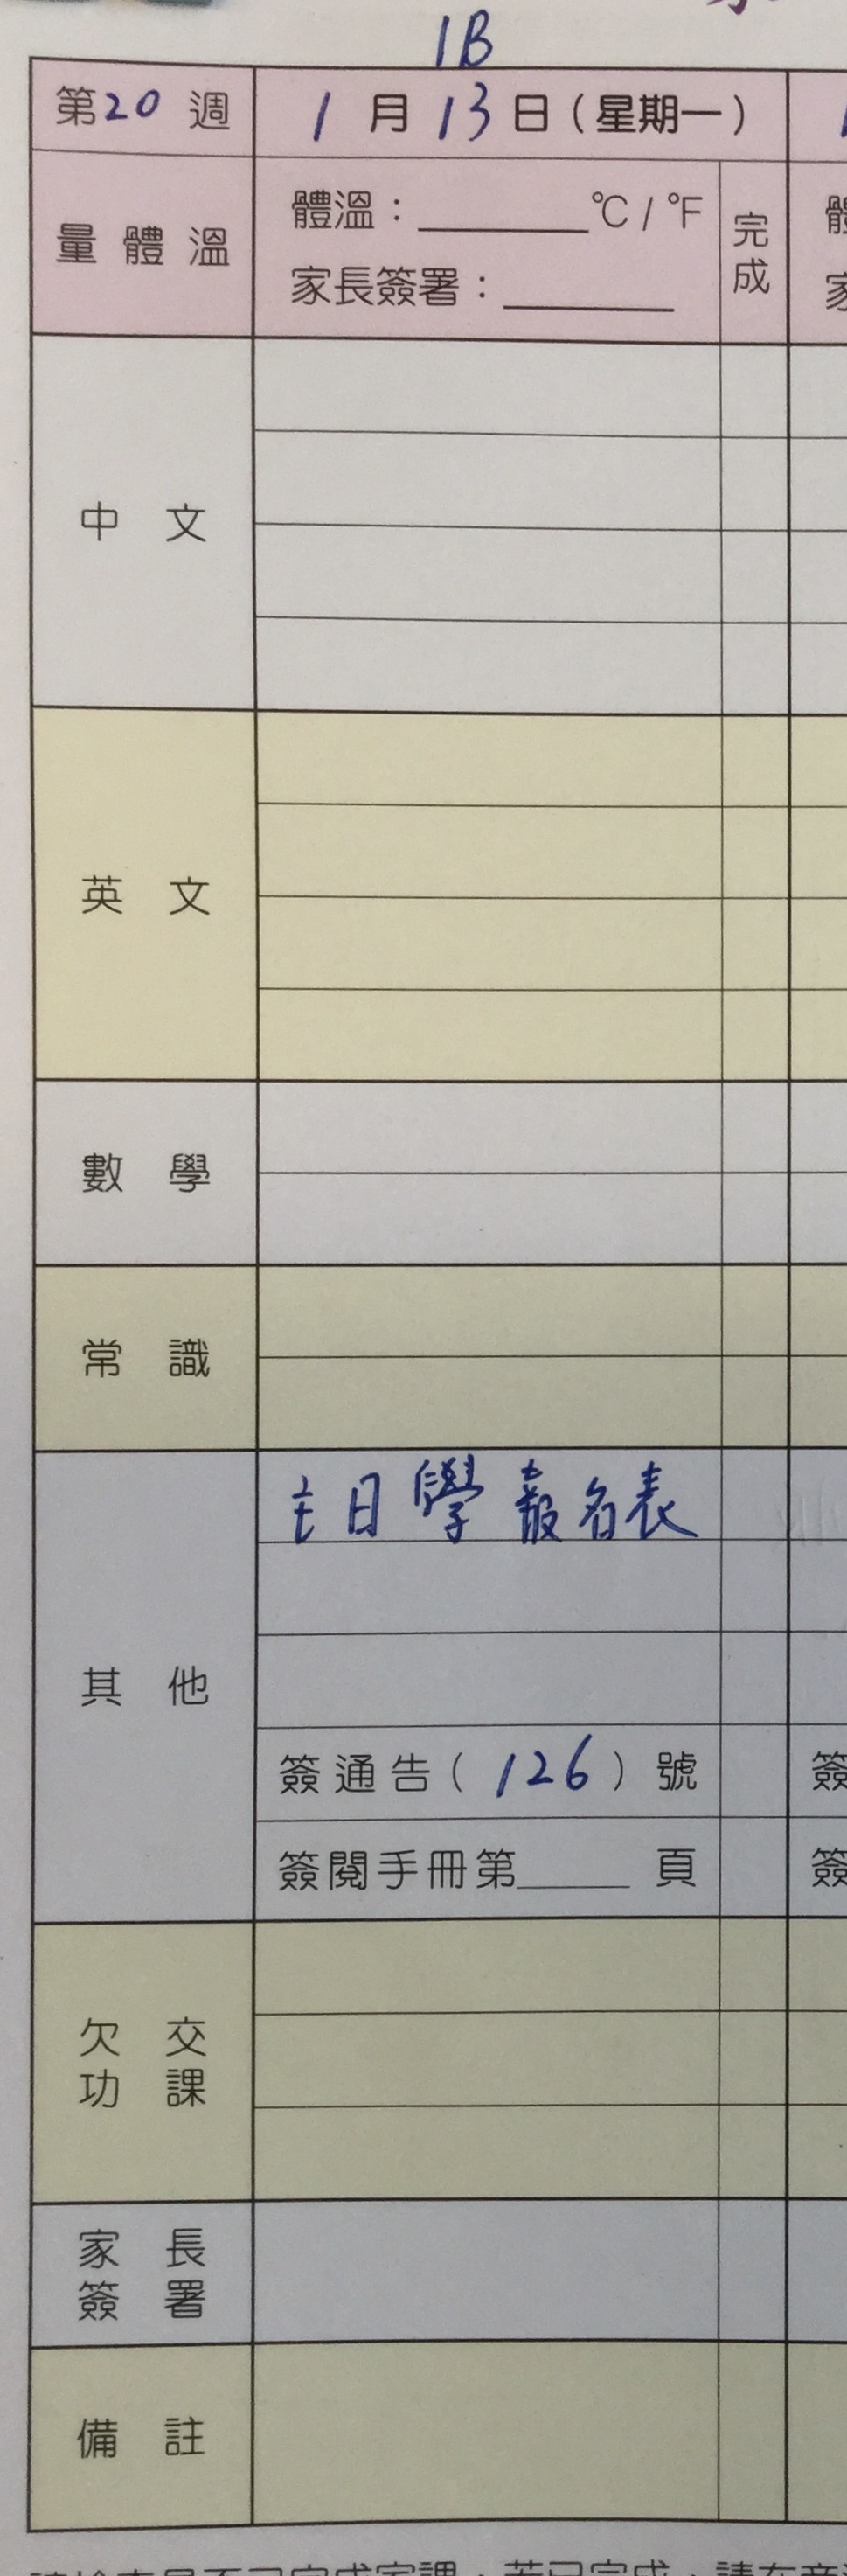 1B
第20週 1月13日(星期一)
量體溫 體溫：______°C / °F 完成
家長簽署：______
中文
英文
數學
常識
主日學報名表
其他
簽通告(126)號 簽
簽閱手冊第____頁 簽
欠交
功課
家長
簽署
備註